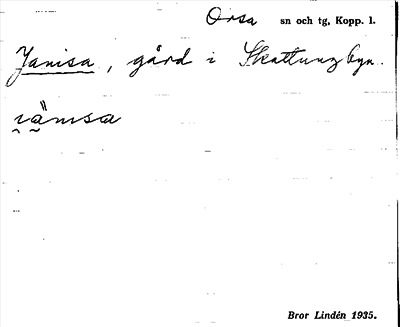 Orsa sn och tg, Kopp. l.
Jämsa, gård i Skattungbyn.
Bror Lindén 1935.